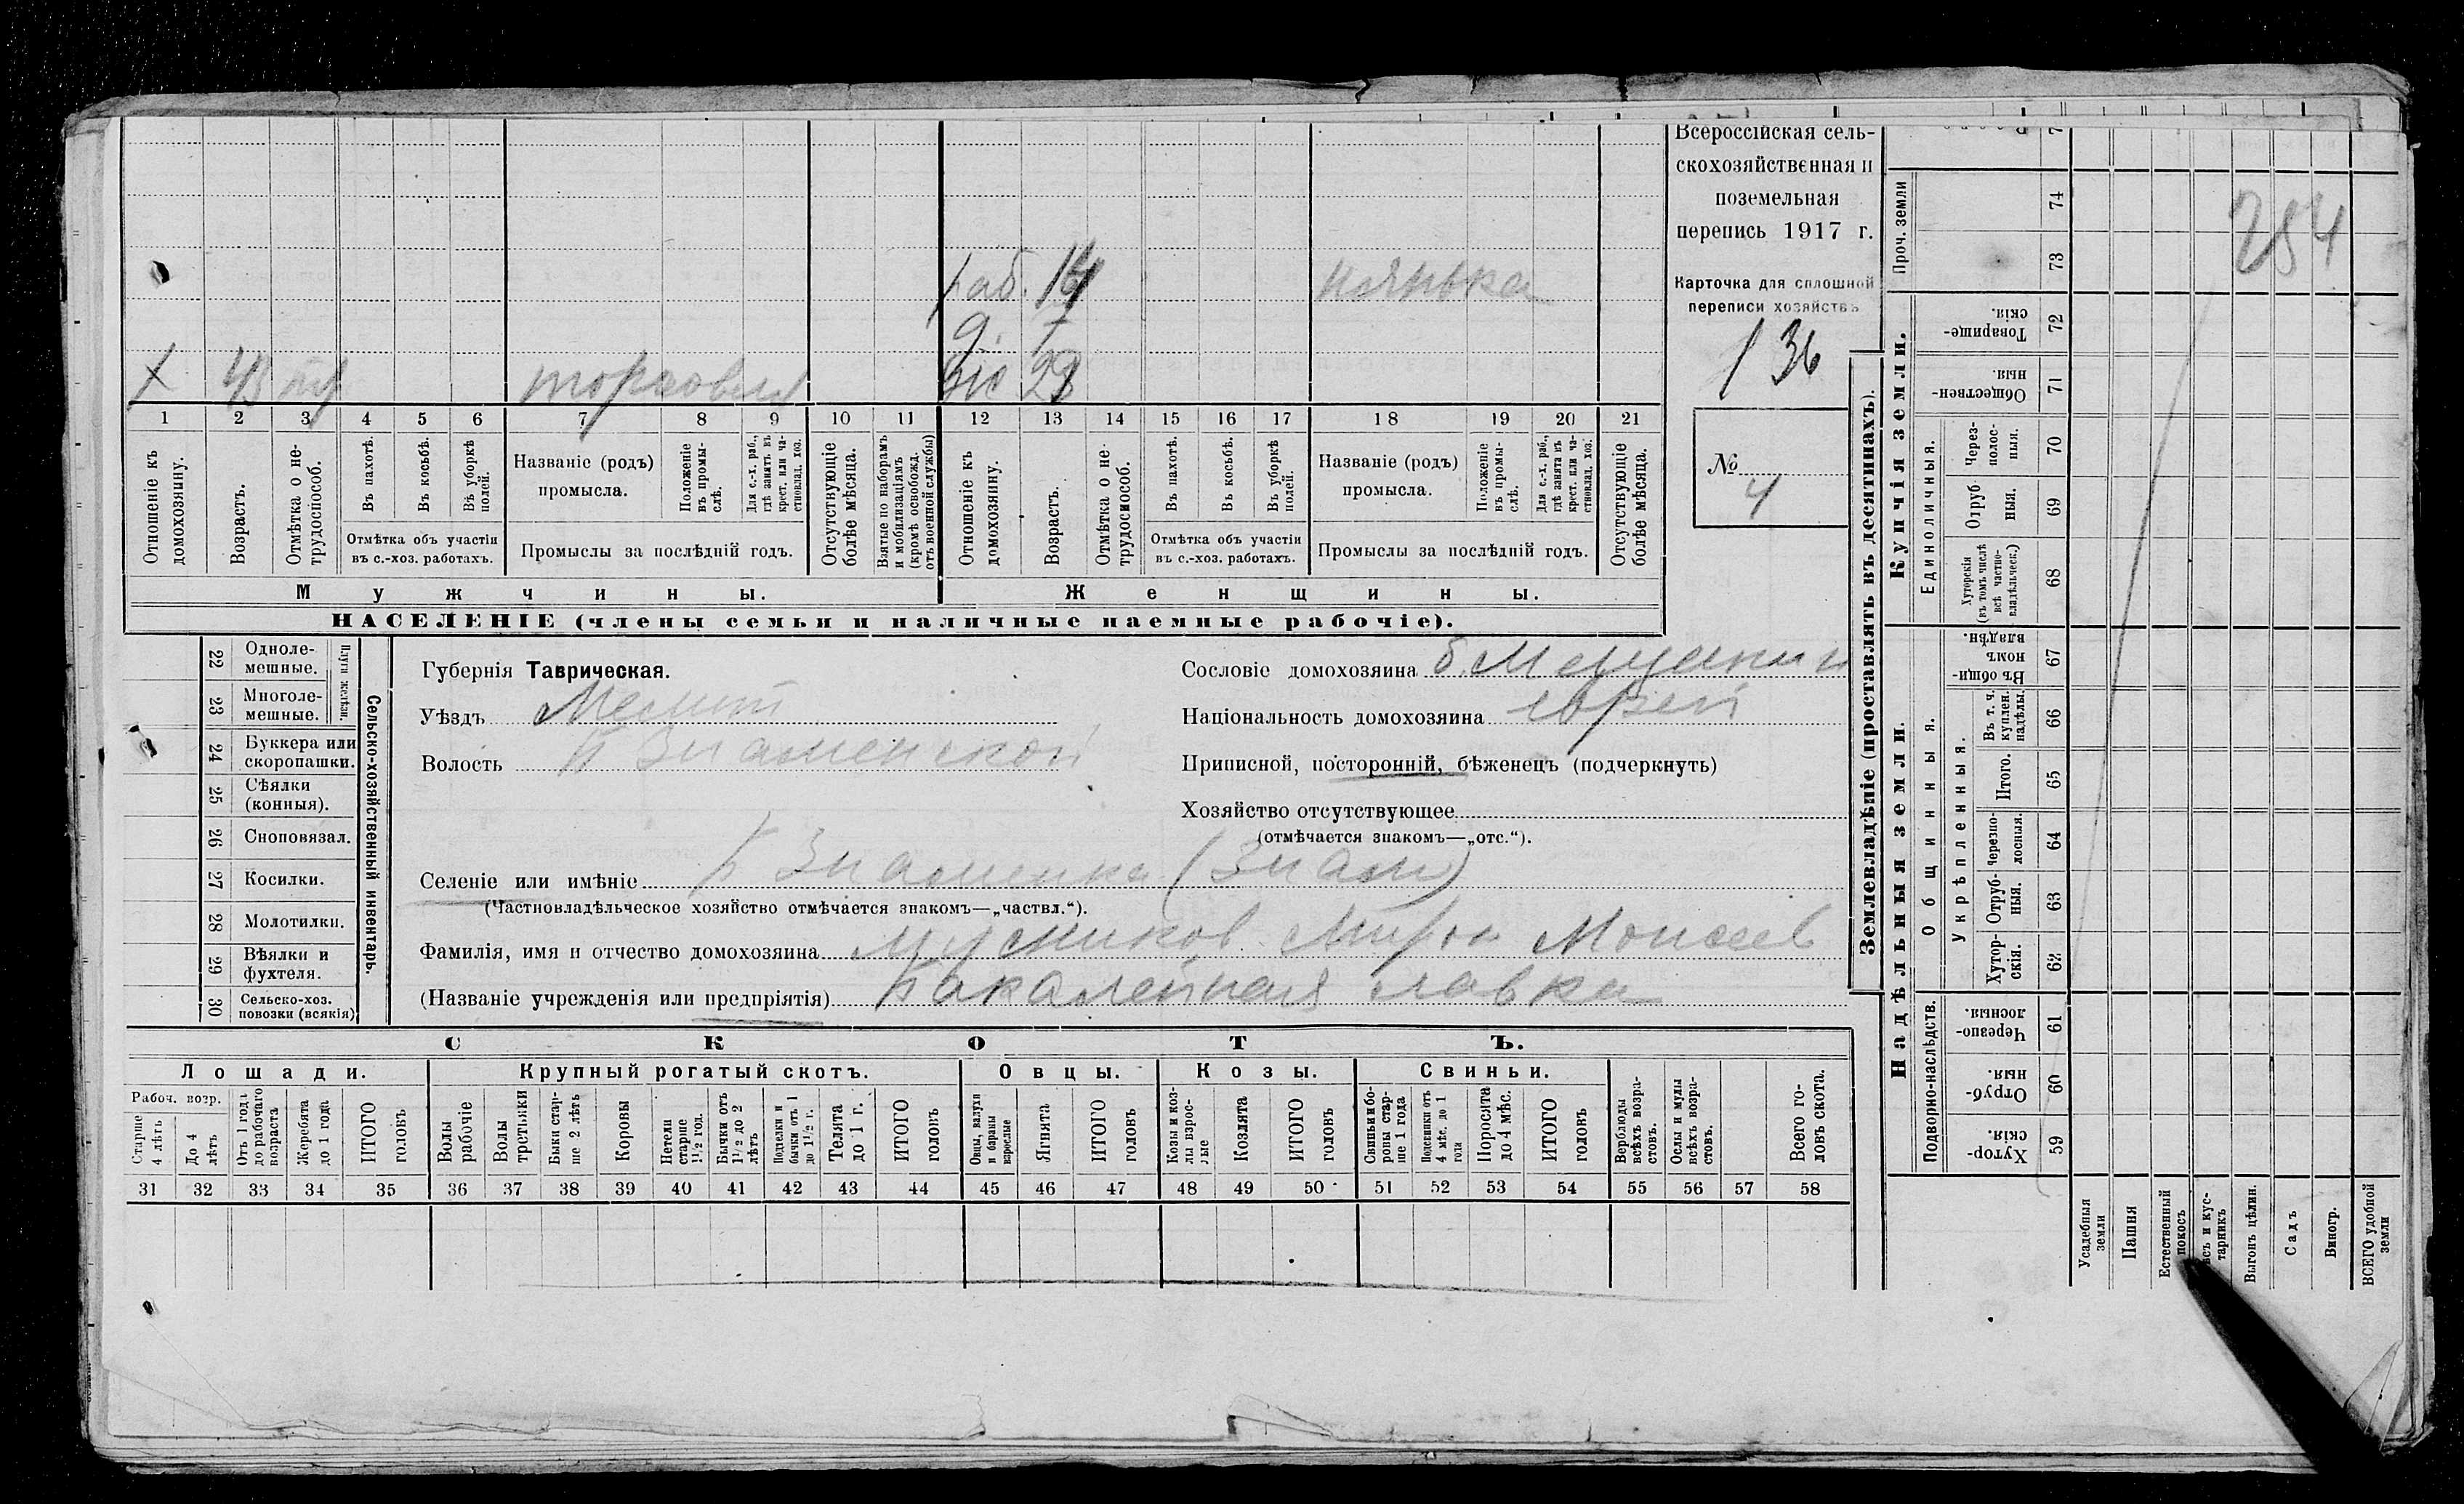 Всероссійская сель-
скохозяйственная и
поземельная
перепись 1917 г.
Карточка для сплошной
переписи хозяйствъ
136
№ 4
254
раб. нянька
д.
х 43 торговля
1 2 3 4 5 6 7 8 9 10 11 12 13 14 15 16 17 18 19 20 21
Отношеніе къ домохозяину.
Возрастъ.
Отмѣтка о не-трудоспособ.
Въ пахотѣ.
Въ косьбѣ.
Въ уборкѣ полей.
Отмѣтка объ участіи
въ с.-хоз. работахъ.
Названіе (родъ)
промысла.
Положеніе въ промы-слѣ.
Для с.-х. раб., гдѣ занятъ въ крест. или ча-стновлад. хоз.
Промыслы за послѣдній годъ.
Отсутствующіе болѣе мѣсяца.
Взятые по наборамъ и мобилизаціямъ (кромѣ освобожд. отъ военной службы)
Отношеніе къ домохозяину.
Возрастъ.
Отмѣтка о не-трудоспособ.
Въ пахотѣ.
Въ косьбѣ.
Въ уборкѣ полей.
Отмѣтка объ участіи
въ с.-хоз. работахъ.
Названіе (родъ)
промысла.
Положеніе въ промы-слѣ.
Для с.-х. раб., гдѣ занята въ крест. или ча-стновлад. хоз.
Промыслы за послѣдній годъ.
Отсутствующіе болѣе мѣсяца.
Мужчины. Женщины.
НАСЕЛЕНІЕ (члены семьи и наличные наемные рабочіе).
22 Одноле-мешные.
23 Многоле-мешные.
Плуги желѣзн.
24 Буккера или скоропашки.
25 Сѣялки (конныя).
26 Сноповязал.
27 Косилки.
28 Молотилки.
29 Вѣялки и фухтеля.
30 Сельско-хоз. повозки (всякія)
Сельско-хозяйственный инвентарь.
Губернія Таврическая.
Уѣздъ Мелит
Волость Б Знаменской
Селеніе или имѣніе Б Знаменка (Знам)
(Частновладѣльческое хозяйство отмѣчается знакомъ—„частвл.“).
Фамилія, имя и отчество домохозяина Мирон Моисеев
(Названіе учрежденія или предпріятія) Бакалейная лавка
Сословіе домохозяина б. Мещанин
Національность домохозяина еврей
Приписной, посторонній, бѣженецъ (подчеркнуть)
Хозяйство отсутствующее
(отмѣчается знакомъ—„отс.“).
СКОТЪ.
Лошади. Крупный рогатый скотъ. Овцы. Козы. Свиньи.
Рабоч. возр.
Старше 4 лѣтъ
До 4 лѣтъ
Отъ 1 года до рабочаго возраста
Жеребята до 1 года
ИТОГО головъ
Волы рабочіе
Волы третьяки
Быки стар-ше 2 лѣтъ
Коровы
Нетели старше 1½ год.
Бычки отъ 1½ до 2 лѣтъ
Подтелки и бычки отъ 1 до 1½ г.
Телята до 1 г.
ИТОГО головъ
Овцы, валухи и бараны взрослые
Ягнята
ИТОГО головъ
Козы и коз-лы взрос-лые
Козлята
ИТОГО головъ
Свиньи и бо-ровы стар-ше 1 года
Подсвинки отъ 4 мѣс. до 1 года
Поросята до 4 мѣс.
ИТОГО головъ
Верблюды всѣхъ возра-стовъ.
Ослы и мулы всѣхъ возра-стовъ.
Всего го-ловъ скота.
31 32 33 34 35 36 37 38 39 40 41 42 43 44 45 46 47 48 49 50 51 52 53 54 55 56 57 58
Землевладѣніе (проставлять въ десятинахъ).
Проч. земли
74
73
Купчія земли.
Товарище-скія. 72
Обществен-ныя. 71
Единоличныя.
Через-полос-ныя. 70
Отруб-ныя. 69
Хуторскія (въ томъ числѣ всѣ частно-владѣльческ.) 68
Надѣльныя земли.
Общинныя.
Въ общин-номъ владѣн. 67
Укрѣпленныя.
Въ т. ч. куплен. надѣлы. 66
Итого. 65
Черезпо-лосныя. 64
Отруб-ныя. 63
Хутор-скія. 62
Подворно-наслѣдств.
Черезпо-лосныя. 61
Отруб-ныя. 60
Хутор-скія. 59
Усадебныя земли
Пашня
Естественный покосъ
и кус-тарникъ
Выгонъ цѣлин.
Садъ
Виногр.
ВСЕГО удобной земли